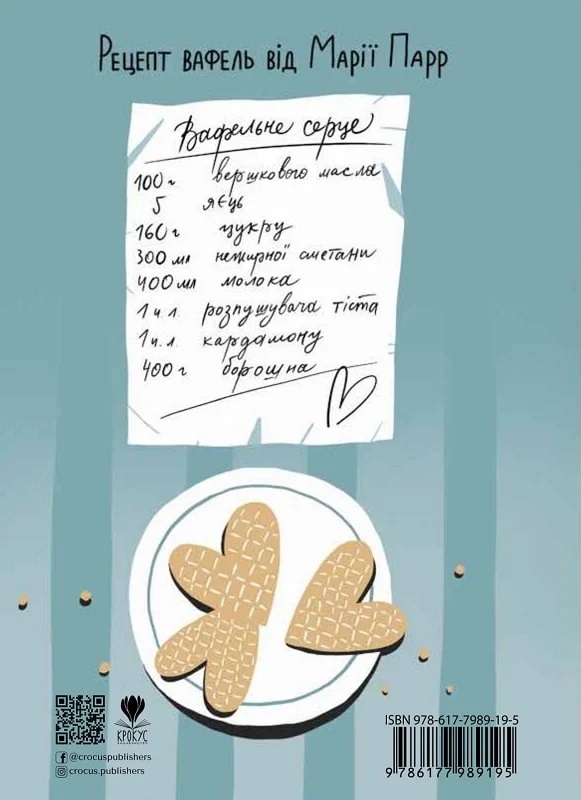 Рецепт вафель від Марії Парр
Вафельне серце
100 г вершкового масла
5 яєць
160 г цукру
300 мл нежирної сметани
400 мл молока
1 ч.л. розпушувача тіста
1 ч.л. кардамону
400 г борошна
КРОКУС
@crocus.publishers
crocus.publishers
ISBN 978-617-7989-19-5
9 786177 989195